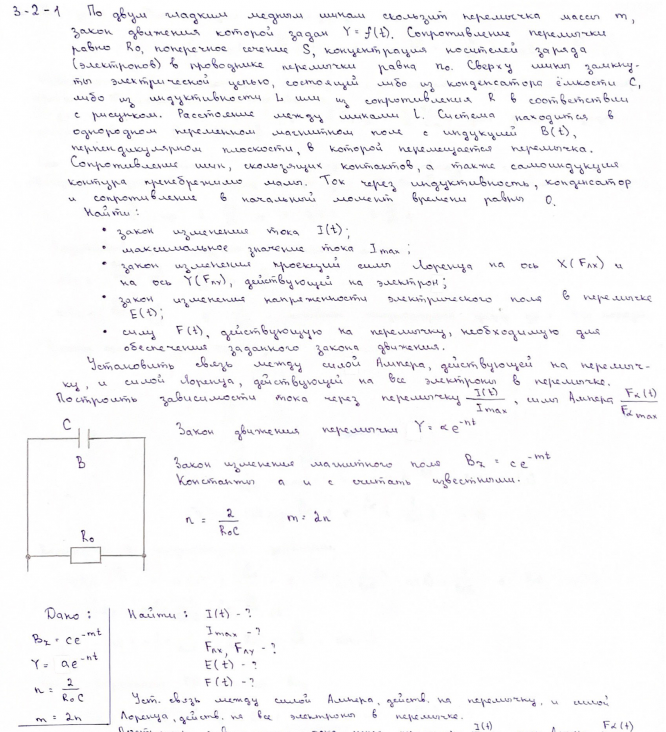 3-2-1 По двум гладким медным шинам скользит перемычка массы m,
закон движения которой задан Y = f(t). Сопротивление перемычки
равно R₀, поперечное сечение S, концентрация носителей заряда
(электронов) в проводнике перемычки равна n₀. Сверху шины замкну-
ты электрической цепью, состоящей либо из конденсатора ёмкости C,
либо из индуктивности L или из сопротивления R в соответствии
с рисунком. Расстояние между шинами l. Система находится в
однородном переменном магнитном поле с индукцией B(t),
перпендикулярном плоскости, в которой перемещается перемычка.
Сопротивление шин, скользящих контактов, а также самоиндукция
контура пренебрежимо малы. Ток через индуктивность, конденсатор
и сопротивление в начальный момент времени равны 0.
Найти:
• закон изменения тока I(t);
• максимальное значение тока Imax;
• закон изменения проекций силы Лоренца на ось X(Fлx) и
на ось Y(Fлy), действующей на электрон;
• закон изменения напряженности электрического поля в перемычке
E(t);
• силу F(t), действующую на перемычку, необходимую для
обеспечения заданного закона движения.
Установить связь между силой Ампера, действующей на перемыч-
ку, и силой Лоренца, действующей на все электроны в перемычке.
Построить зависимости тока через перемычку I(t)/Imax, силы Ампера Fα(t)/Fα max
C
B
R₀
Закон движения перемычки Y = αe^-nt
Закон изменения магнитного поля Bz = ce^-mt
Константы a и c считать известными.
n = 2/R₀C m = 2n
Дано:
Bz = ce^-mt
Y = ae^-nt
n = 2/R₀C
m = 2n
Найти: I(t) - ?
Imax - ?
Fлx, Fлy - ?
E(t) - ?
F(t) - ?
Уст. связь между силой Ампера, действ. на перемычку, и силой
Лоренца, действ. на все электроны в перемычке.
I(t) Fα(t)